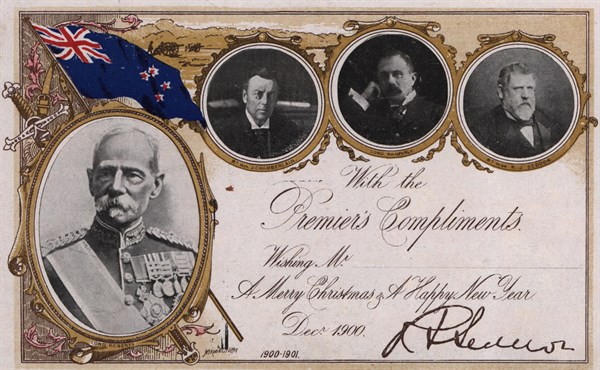 With the
Premier's Compliments.
Wishing Mr
A Merry Christmas & A Happy New Year
Decr 1900.
1900-1901.